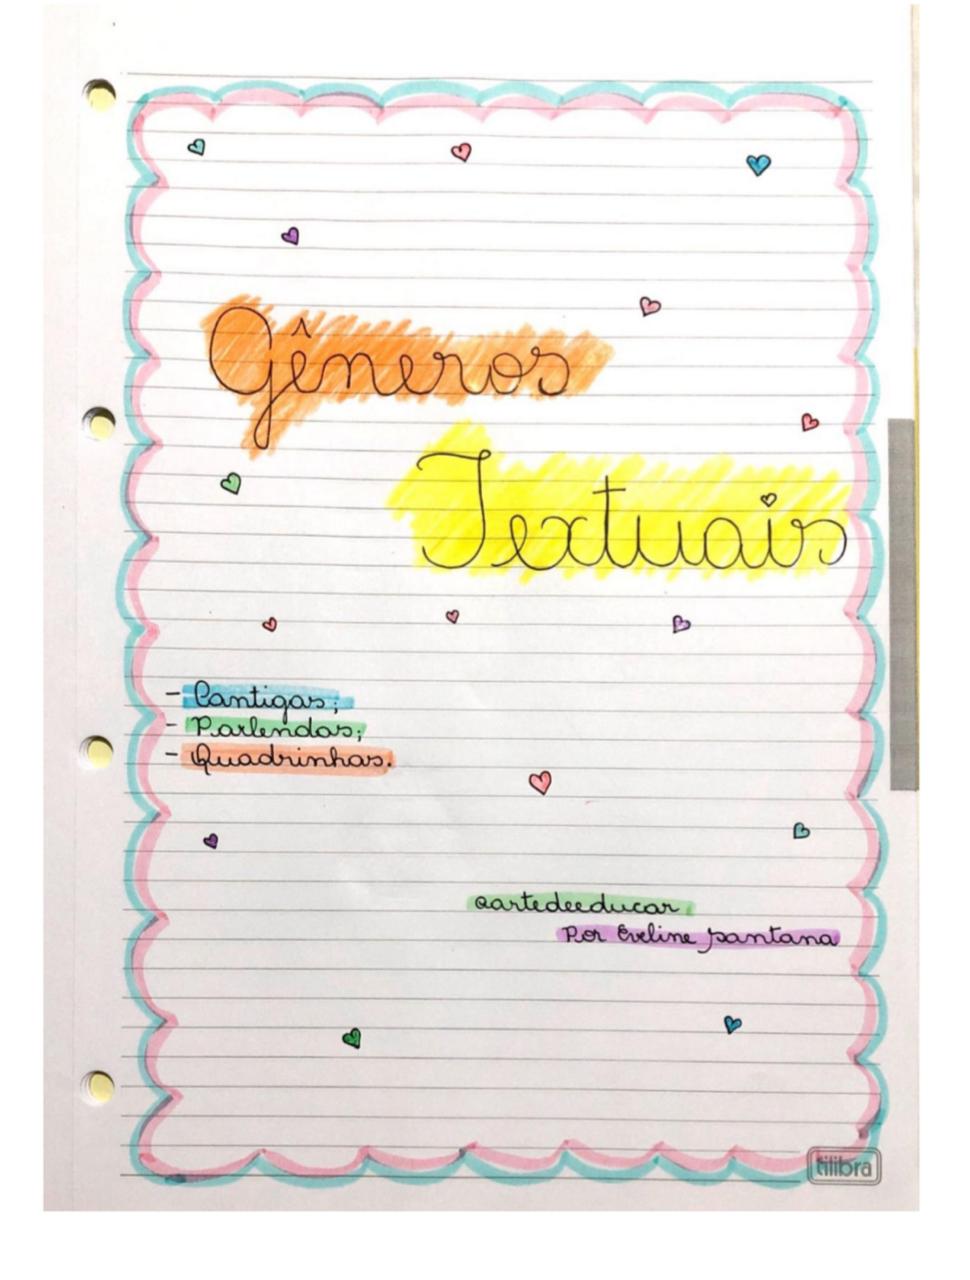 Gêneros
Textuais
- Cantigas;
- Parlendas;
- Quadrinhas.
@artedeeducar
Por Eveline Santana
tilibra